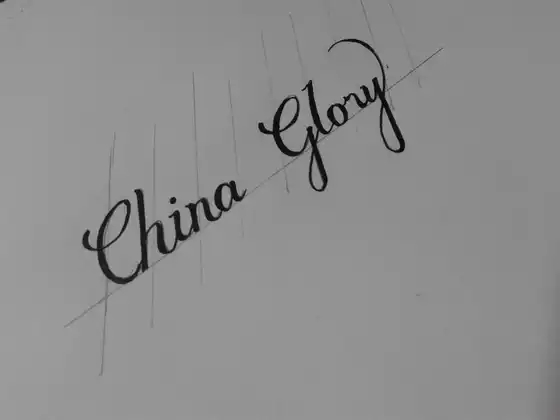 China Glory